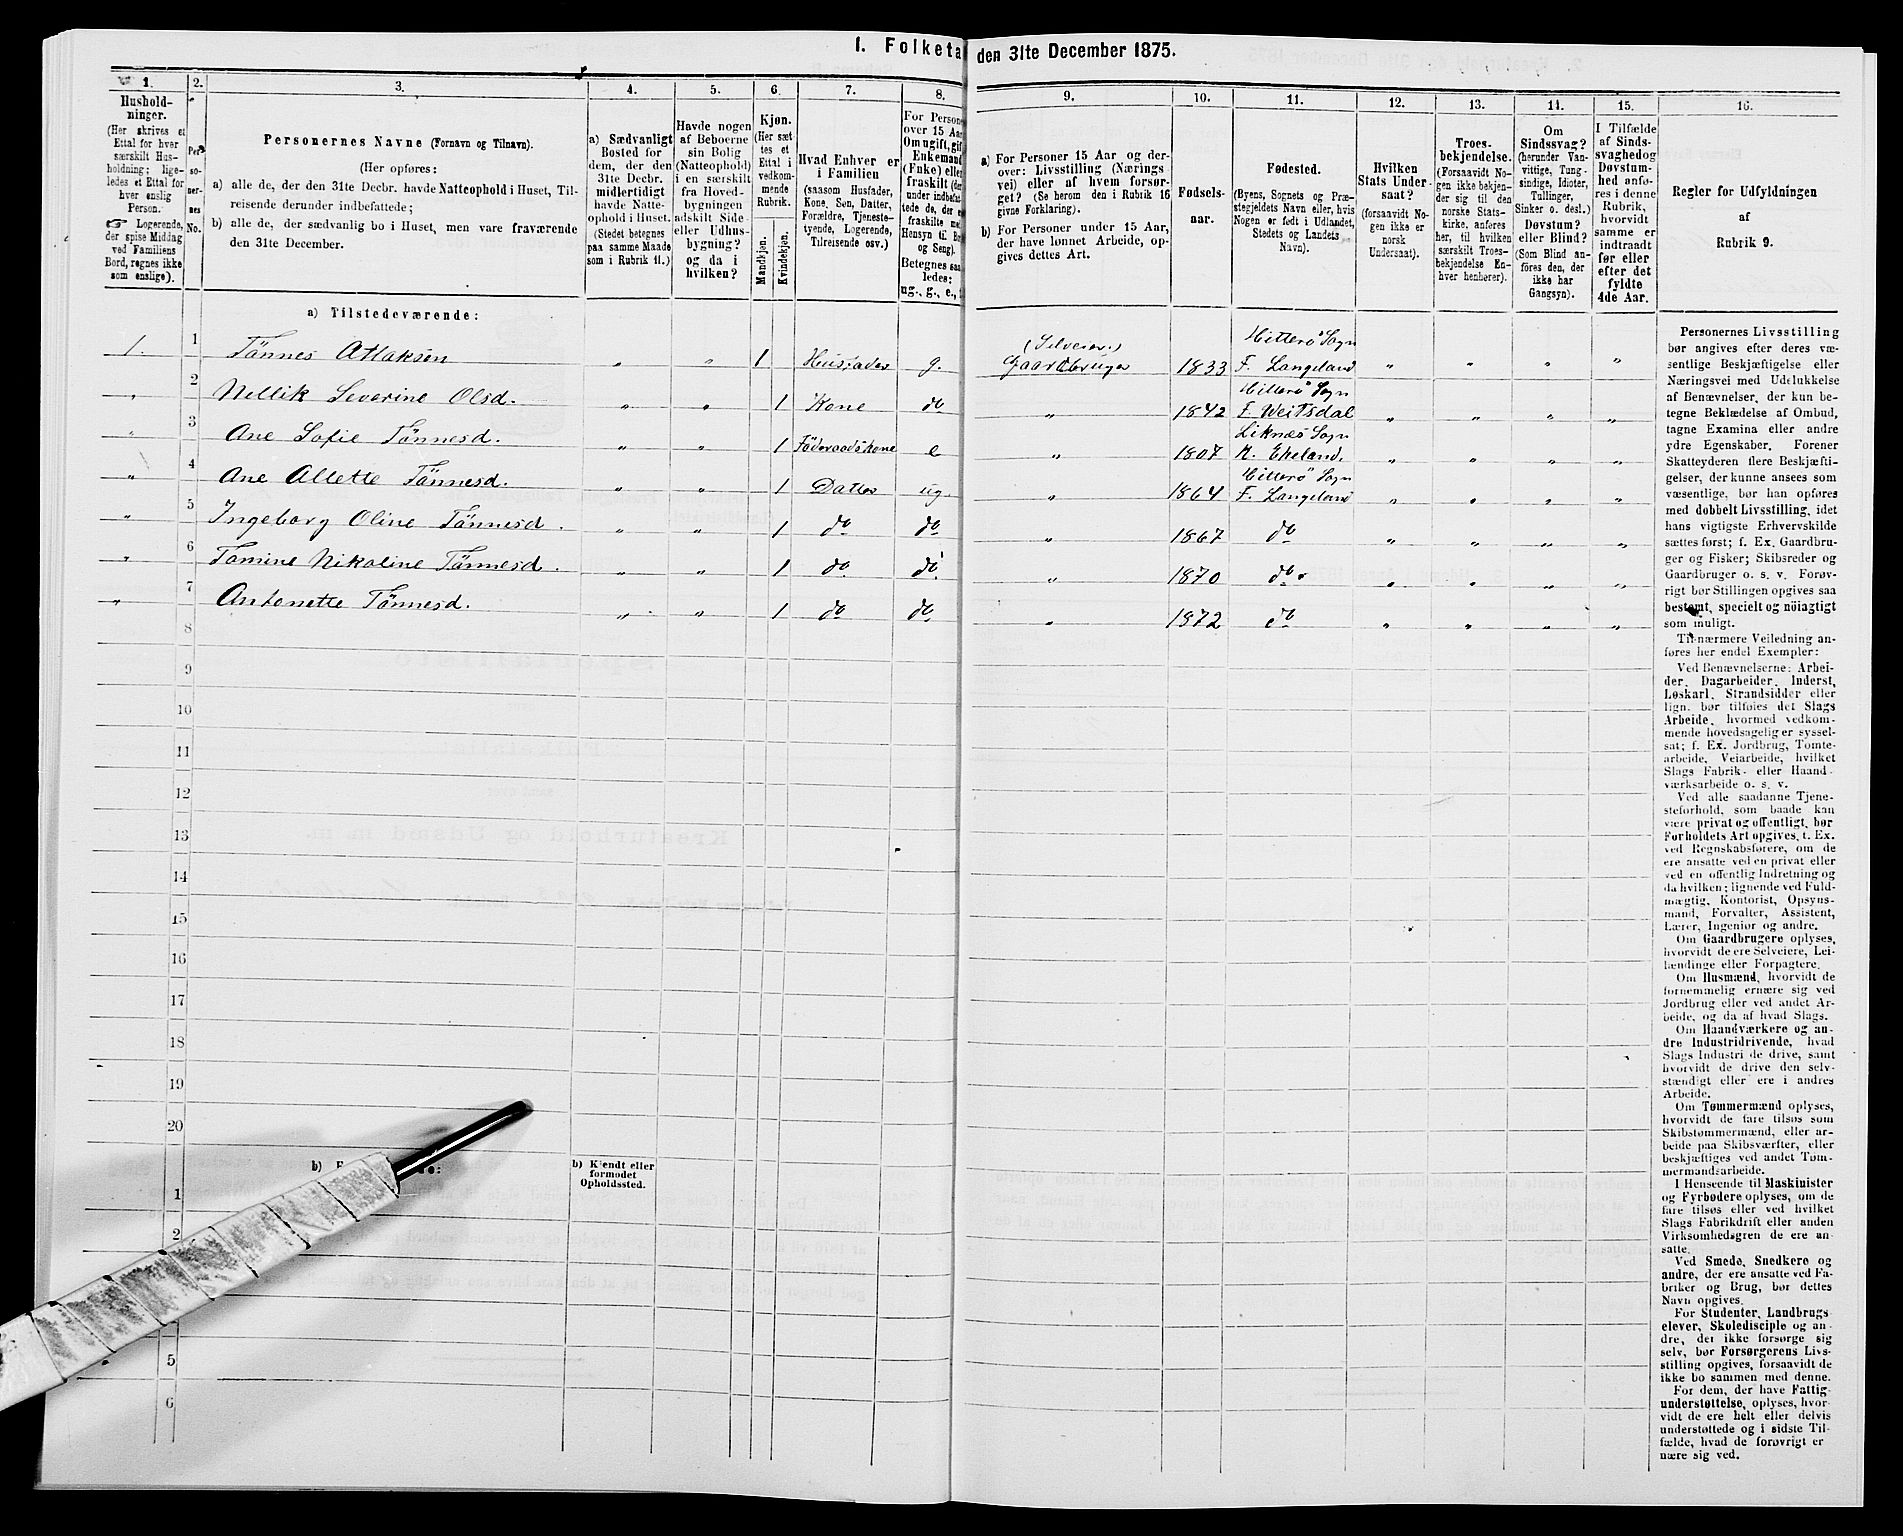 1. Folketa den 31te December 1875.
1.
Hushold-
ninger.
(Her skrives et
Ettal for hver
særskilt Hus-
holdning; lige-
ledes et Ettal for
hver enslig
Person.
☞ Logerende,
der spise Middag
ved Familiens
Bord, regnes ikke
som enslige).
2.
Per-
so-
ner-
nes
No.
3.
Personernes Navne (Fornavn og Tilnavn).
(Her opføres:
a) alle de, der den 31te Decbr. havde Natteophold i Huset, Til-
reisende derunder indbefattede;
b) alle de, der sædvanlig bo i Huset, men vare fraværende
den 31te December.
4.
a) Sædvanligt
Bosted for
dem, der den
31te Decbr.
midlertidigt
havde Natte-
ophold i Huset.
(Stedet betegnes
paa samme Maade
som i Rubrik 11.)
5.
Havde nogen
af Beboerne
sin Bolig
(Natteophold)
i en særskilt
fra Hoved-
bygningen
adskilt Side-
eller Udhus-
bygning?
og da i
hvilken?
6.
Kjøn.
(Her sæt-
tes et
Ettal i
vedkom-
mende
Rubrik.
Mandkjøn.
Kvindekjøn.
7.
Hvad Enhver er
i Familien
(saasom Husfader,
Kone, Søn, Datter,
Forældre, Tjeneste-
tyende, Logerende,
Tilreisende osv.)
8.
For Person
over 15 Aar
Om ugift, gif
Enkemand
(Enke) elle
fraskilt (de
under indbefat-
tede de, der e
fraskilte me
Hensyn til Bo
og Seng).
Betegnes saa
ledes:
ug., g., e.,
9.
a) For Personer 15 Aar og der-
over: Livsstilling (Nærings
vei) eller af hvem forsør-
get? (Se herom den i Rubrik 16
givne Forklaring).
b) For Personer under 15 Aar,
der have lønnet Arbeide, op-
gives dettes Art.
10.
Fødsels-
aar.
11.
Fødested.
(Byens, Sognets og Præ-
stegjeldets Navn eller, hvis
Nogen er født i Udlandet,
Stedets og Landets
Navn).
12.
Hvilken
Stats Under-
saat?
(forsaavidt No-
gen ikke er
norsk
Undersaat).
13.
Troes-
bekjendelse.
(Forsaavidt No-
gen ikke bekjen-
der sig til den
norske Stats-
kirke, anføres
her, til hvilken
særskilt Troes-
bekjendelse En-
hver henhører).
14.
Om
Sindssvag?
(herunder Van-
vittige, Tung-
sindige, Idioter,
Tullinger,
Sinker o. desl.)
Døvstum?
eller Blind?
(Som Blind an-
føres den, der
ikke har
Gangsyn).
15.
I Tilfælde
af Sinds-
svaghed og
Døvstum-
hed anfø-
res i denne
Rubrik,
hvorvidt
samme er
indtraadt
før eller
efter det
fyldte
4de Aar.
16.
Regler for Udfyldningen
af
Rubrik 9.
a) Tilstedeværende:
1. 1 Tönnes Atlaksen „ „ 1 Husfader g. (Selveier.) Gaardbruger 1833 Hitterö Sogn F. Langeland „ „ „ „
„ 2 Nellik Severine Olsd. „ „ 1 Kone do „ 1842 Hitterö Sogn F. Weitsdal „ „ „ „
„ 3 Ane Sofie Tönnesd. „ „ 1 Föderaadskone e „ 1807 Liknæs Sogn K. Eheland. „ „ „ „
„ 4 Ane Allette Tönnesd. „ „ 1 Datter ug. „ 1864 Hitterö Sogn F. Langeland „ „ „ „
„ 5 Ingeborg Oline Tönnesd. „ „ 1 do do „ 1867 do „ „ „ „
„ 6 Tomine Nikoline Tönnesd. „ „ 1 do do „ 1870 do „ „ „ „
„ 7 Antonette Tönnesd. „ „ 1 do do „ 1872 do „ „ „ „
8
9
10
11
12
13
14
15
16
17
18
19
20
b) F de:
b) Kjendt eller
formodet
Opholdssted.
1
2
5
6
Personernes Livsstilling
bør angives efter deres væ-
sentlige Beskjæftigelse eller
Næringsvei med Udelukkelse
af Benævnelser, der kun be-
tegne Beklædelse af Ombud,
tagne Examina eller andre
ydre Egenskaber. Forener
Skatteyderen flere Beskjæfti-
gelser, der kunne ansees som
væsentlige, bør han opføres
med dobbelt Livsstilling, idet
hans vigtigste Erhvervskilde
sættes først; f. Ex. Gaardbru-
ger og Fisker; Skibsreder og
Gaardbruger o. s. v. Forøv-
rigt bør Stillingen opgives saa
bestemt, specielt og nöiagtigt
som muligt.
Til nærmere Veiledning an-
føres her endel Exempler:
Ved Benævnelserne: Arbei-
der, Dagarbeider, Inderst,
Løskarl, Strandsidder eller
lign. bør tilføies det Slags
Arbeide, hvormed vedkom-
mende hovedsagelig er syssel-
sat; f. Ex. Jordbrug, Tomte-
arbeide, Veiarbeide, hvilket
Slags Fabrik- eller Haand-
værksarbeide o. s. v.
Ved alle saadanne Tjene-
steforhold, som baade kan
være privat og offentligt, bør
Forholdets Art opgives, t. Ex.
ved Regnskabsførere, om de
ere ansatte ved en privat eller
ved en offentlig Indretning og
da hvilken; lignende ved Fuld-
mægtig, Kontorist, Opsyns-
mand, Forvalter, Assistent,
Lærer, Ingeniør og andre.
Om Gaardbrugere oplyses,
hvorvidt de ere Selveiere, Lei-
lændinge eller Forpagtere.
Om Husmænd, hvorvidt de
fornemmelig ernære sig ved
Jordbrug eller ved andet Ar-
beide, og da af hvad Slags.
Om Haandværkere og an-
dre Industridrivende, hvad
Slags Industri de drive, samt
hvorvidt de drive den selv-
stændigt eller ere i andres
Arbeide.
Om Tømmermænd oplyses,
hvorvidt de fare tilsøs som
Skibstømmermænd, eller ar-
beide paa Skibsværfter, eller
beskjæftiges ved andet Tøm-
mermandsarbeide.
I Henseende til Maskinister
og Fyrbødere oplyses, om de
fare tilsøs eller ved hvilket
Slags Fabrikdrift eller anden
Virksomhedsgren de ere an-
satte.
Ved Smede, Snedkere og
andre, der ere ansatte ved Fa-
briker og Brug, bør dettes
Navn opgives.
For Studenter, Landbrugs-
elever, Skoledisciple og an-
dre, der ikke forsørge sig
selv, bør Forsørgerens Livs-
stilling opgives, forsaavidt de
ikke bo sammen med denne.
For dem, der have Fattig-
understøttelse, oplyses, hvor-
vidt de ere helt eller delvis
understøttede og i sidste Til-
fælde, hvad de forøvrigt er
nære sig ved.